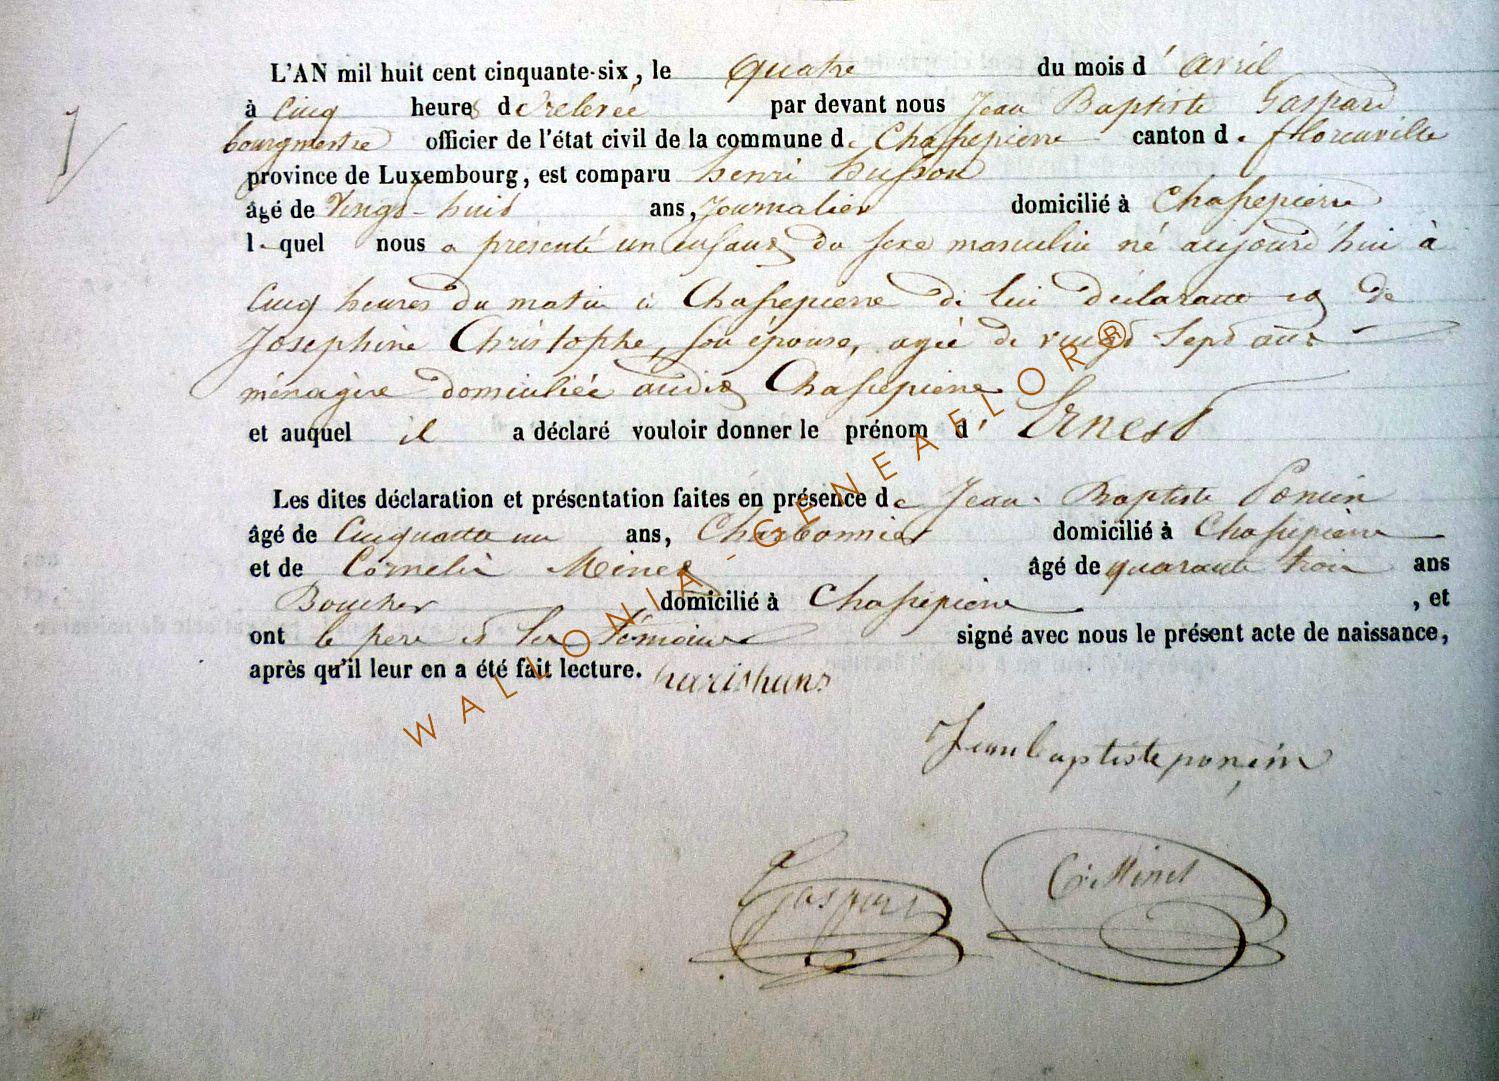 L'AN mil huit cent cinquante-six, le quatre du mois d' avril
à Cinq heures de relevée par devant nous Jean Baptiste Gaspard
bourgmestre officier de l'état civil de la commune de Chassepierre canton de florenville
province de Luxembourg, est comparu henri husson
âgé de Vingt-huit ans, Journalier domicilié à Chassepierre
lequel nous a présenté un enfant du sexe masculin né aujourd'hui à
Cinq heures du matin à Chassepierre de lui déclarant et de
Josephine Christophe, son épouse, agée de vingt Sept ans
ménagère domiciliée audit Chassepierre
et auquel il a déclaré vouloir donner le prénom d' Ernest
Les dites déclaration et présentation faites en présence de Jean Baptiste Poncin
âgé de Cinquante un ans, Charbonnier domicilié à Chassepierre
et de Cornelis Minet âgé de quarante trois ans
Boucher domicilié à Chassepierre, et
ont le pere et les témoins signé avec nous le présent acte de naissance,
après qu'il leur en a été fait lecture.
Jean baptiste ponçin
Gaspard C. Minet
WALLONIA - GENEAFLOR®